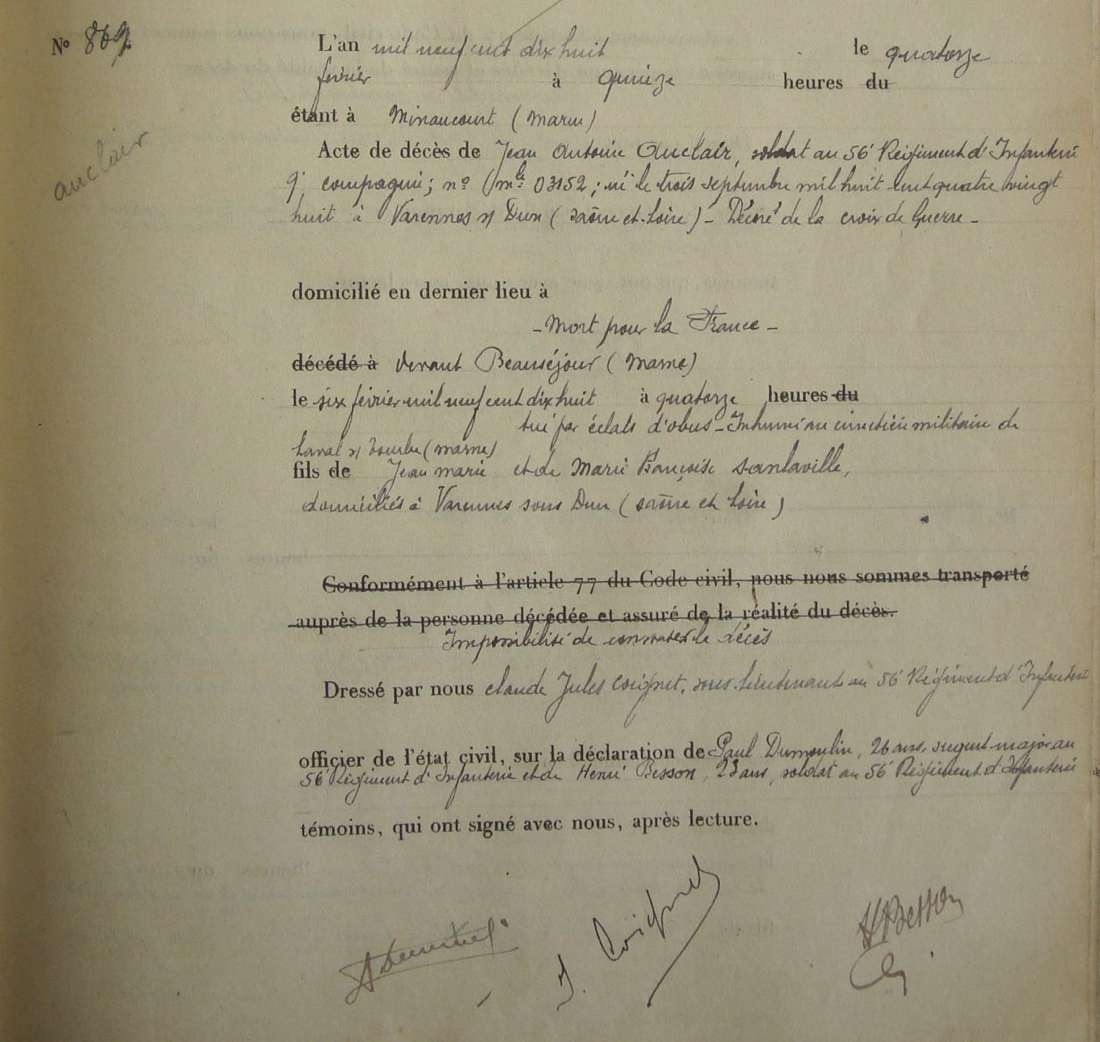 N° 869
auclair
L'an mil neuf cent dix huit le quatorze
fevrier à quinze heures du
étant à Minaucourt (Marne)
Acte de décès de Jean Antoine Auclair, soldat au 56e Régiment d'Infanterie
9e compagnie; n° mle 03152; né le trois septembre mil huit cent quatre vingt
huit à Varennes s/ Dun (Saône et Loire) - Décoré de la croix de Guerre -
domicilié en dernier lieu à
- Mort pour la France -
décédé à devant Beauséjour (Marne)
le six février mil neuf cent dix huit à quatorze heures du
tué par éclats d'obus - Inhumé au cimetière militaire de
Laval s/ Tourbe (marne)
fils de Jean marie et de Marie Françoise Sanlaville,
domiciliés à Varennes sous Dun (Saône et Loire)
Conformément à l'article 77 du Code civil, nous nous sommes transporté
auprès de la personne décédée et assuré de la réalité du décès.
Impossibilité de constater le décès
Dressé par nous Claude Jules Coignet, sous-lieutenant au 56e Régiment d'Infanterie
officier de l'état civil, sur la déclaration de Paul Dumoulin, 26 ans, sergent-major au
56e Régiment d'Infanterie et de Henri Besson, 23 ans, soldat au 56e Régiment d'Infanterie
témoins, qui ont signé avec nous, après lecture.
J. Coignet
H Besson